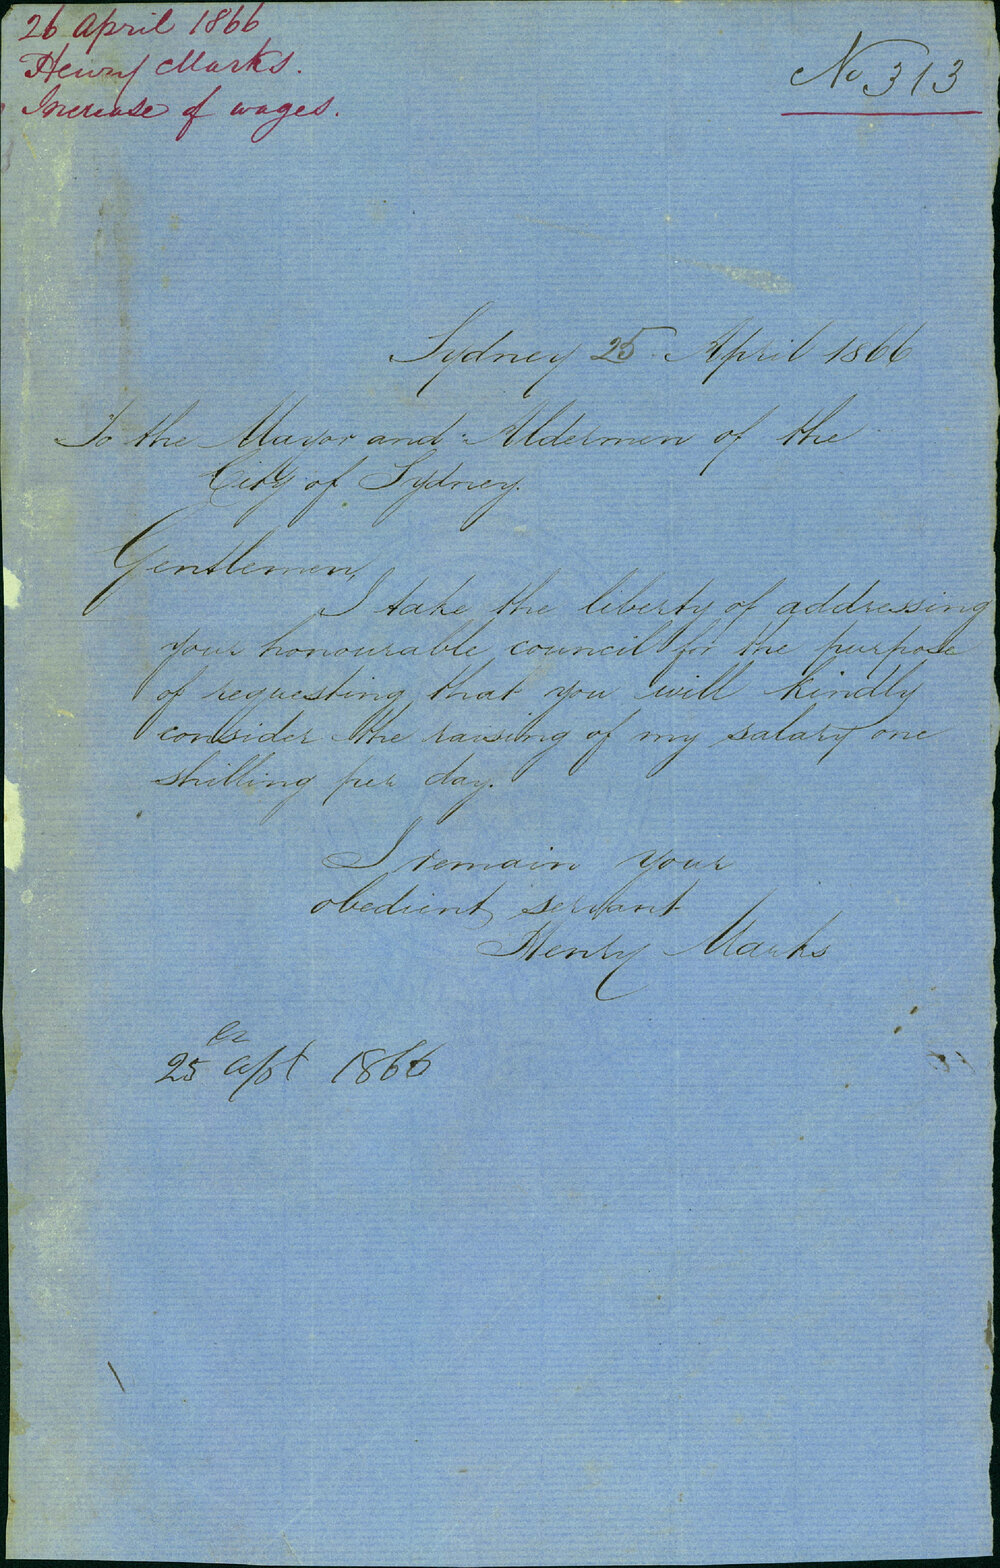 26 April 1866
Henry Marks.
Increase of wages.
No 313
Sydney 25 April 1866
To the Mayor and Aldermen of the
City of Sydney.
Gentlemen,
I take the liberty of addressing
your honourable council for the purpose
of requesting that you will kindly
consider the raising of my salary one
shilling per day.
I remain your
obedient servant
Henry Marks
25 apl 1866